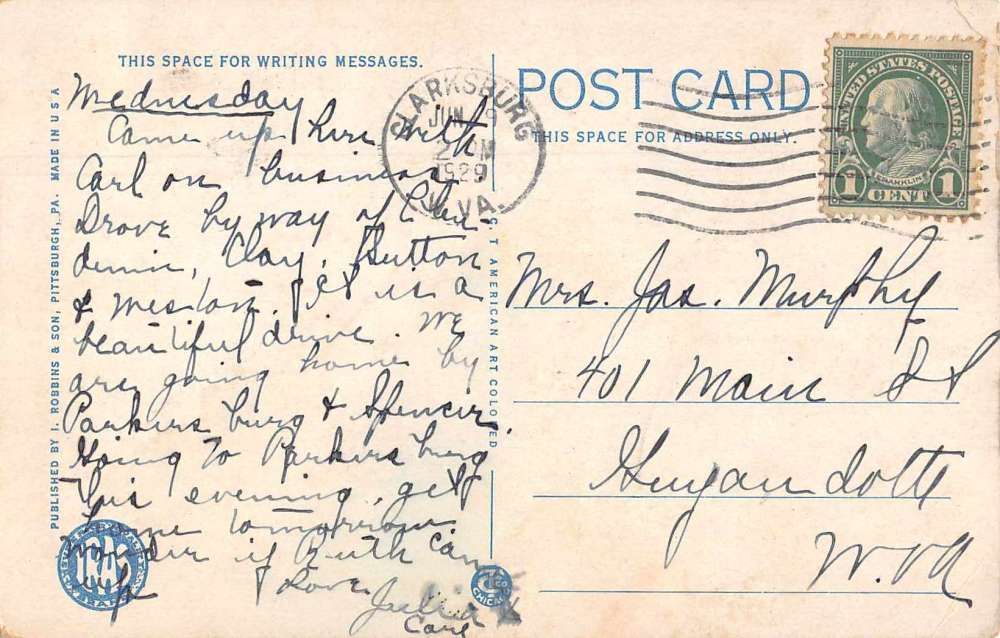 THIS SPACE FOR WRITING MESSAGES.
Wednesday
Came up here with
Carl on business
Drove by way of Clen-
denin, Clay, Sutton
& Weston. It is a
beautiful drive. We
are going home by
Parkersburg & Spencer.
Going to Parkersburg
this evening, get
home tomorrow.
Wonder if Ruth came
up
Love
Julia
Carl
PUBLISHED BY I. ROBBINS & SON, PITTSBURGH, PA. MADE IN U S A
C. T. AMERICAN ART COLORED
POST CARD
THIS SPACE FOR ADDRESS ONLY.
CLARKSBURG
JUN
1929
W.VA.
UNITED STATES POSTAGE
FRANKLIN
1 CENT 1
Mrs. Jas. Murphy
401 Main St
Guyandotte
W.Va
CHICAGO